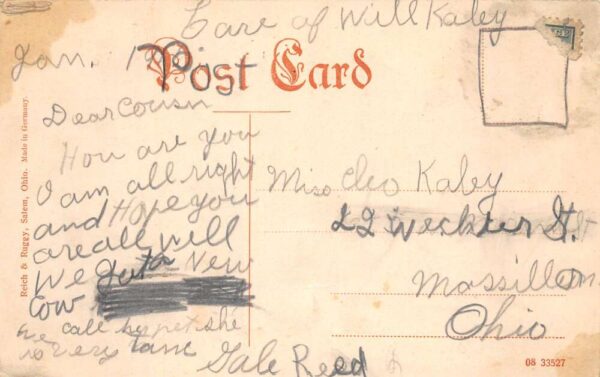 Care of Will Kaley
Jan. 1
Post Card
Dear Cousin
How are you
I am all right
and Hope you
are all will
We New
cow
call her pet she
is very tame
Gale Reed
Miss Cleo Kaley
22 St.
Massillon
Ohio
Reich & Ruggy, Salem, Ohio. Made in Germany.
08 33527